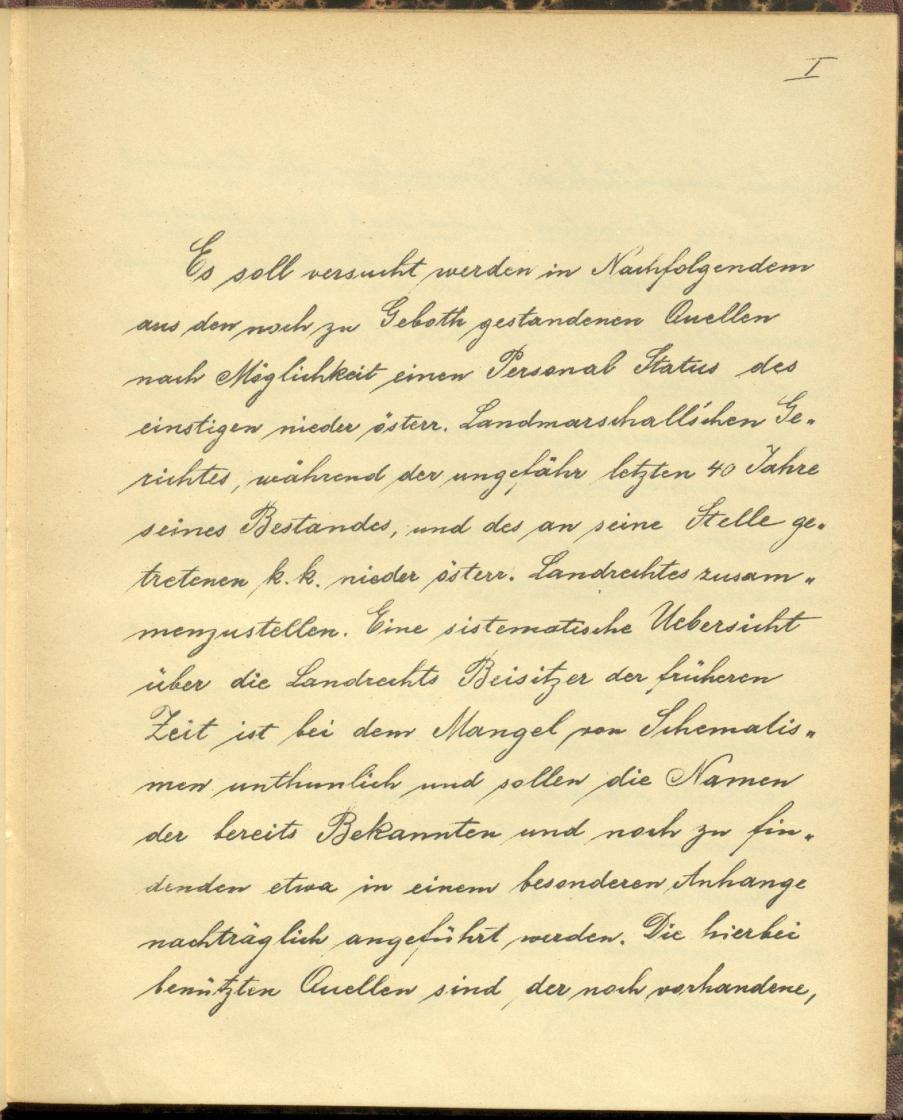 I
Es soll versucht werden in Nachfolgendem
aus den noch zu Geboth gestandenen Quellen
nach Möglichkeit einen Personal Status des
einstigen nieder österr. Landmarschall'schen Ge„
richtes, während der ungefähr letzten 40 Jahre
seines Bestandes, und des an seine Stelle ge„
tretenen k. k. nieder österr. Landrechtes zusam„
menzustellen. Eine sistematische Uebersicht
über die Landrechts Beisitzer der früheren
Zeit ist bei dem Mangel von Schematis„
men unthunlich und sollen die Namen
der bereits Bekannten und noch zu fin„
denden etwa in einem besonderen Anhange
nachträglich angeführt werden. Die hierbei
benützten Quellen sind der noch vorhandene,